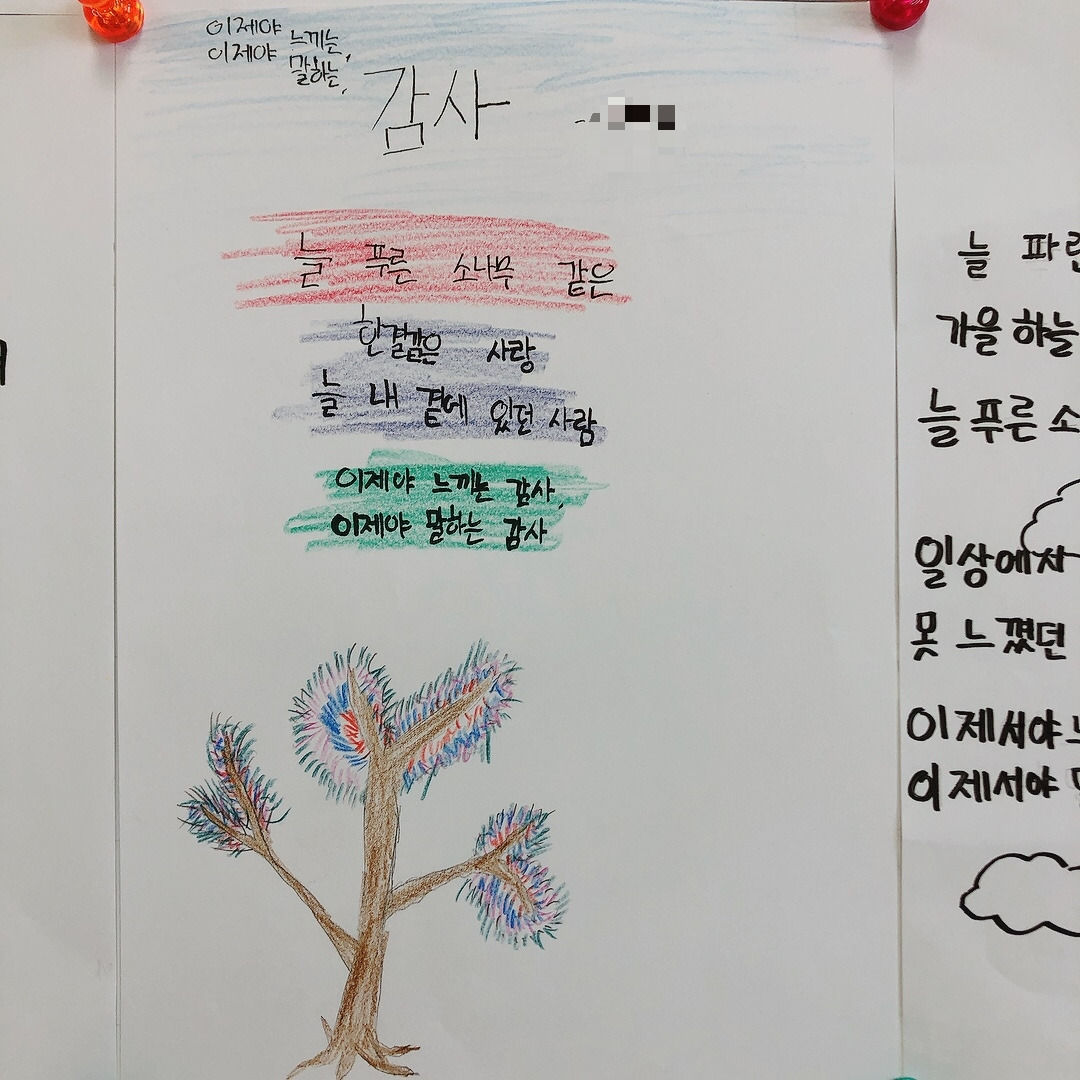 이제야 느끼는,
이제야 말하는,
감사
늘 푸른 소나무 같은
한결같은 사랑
늘 내 곁에 있던 사람
이제야 느끼는 감사,
이제야 말하는 감사
늘 파란
가을 하늘
늘 푸른 소
일상에서
못 느꼈던
이제서야 느
이제서야